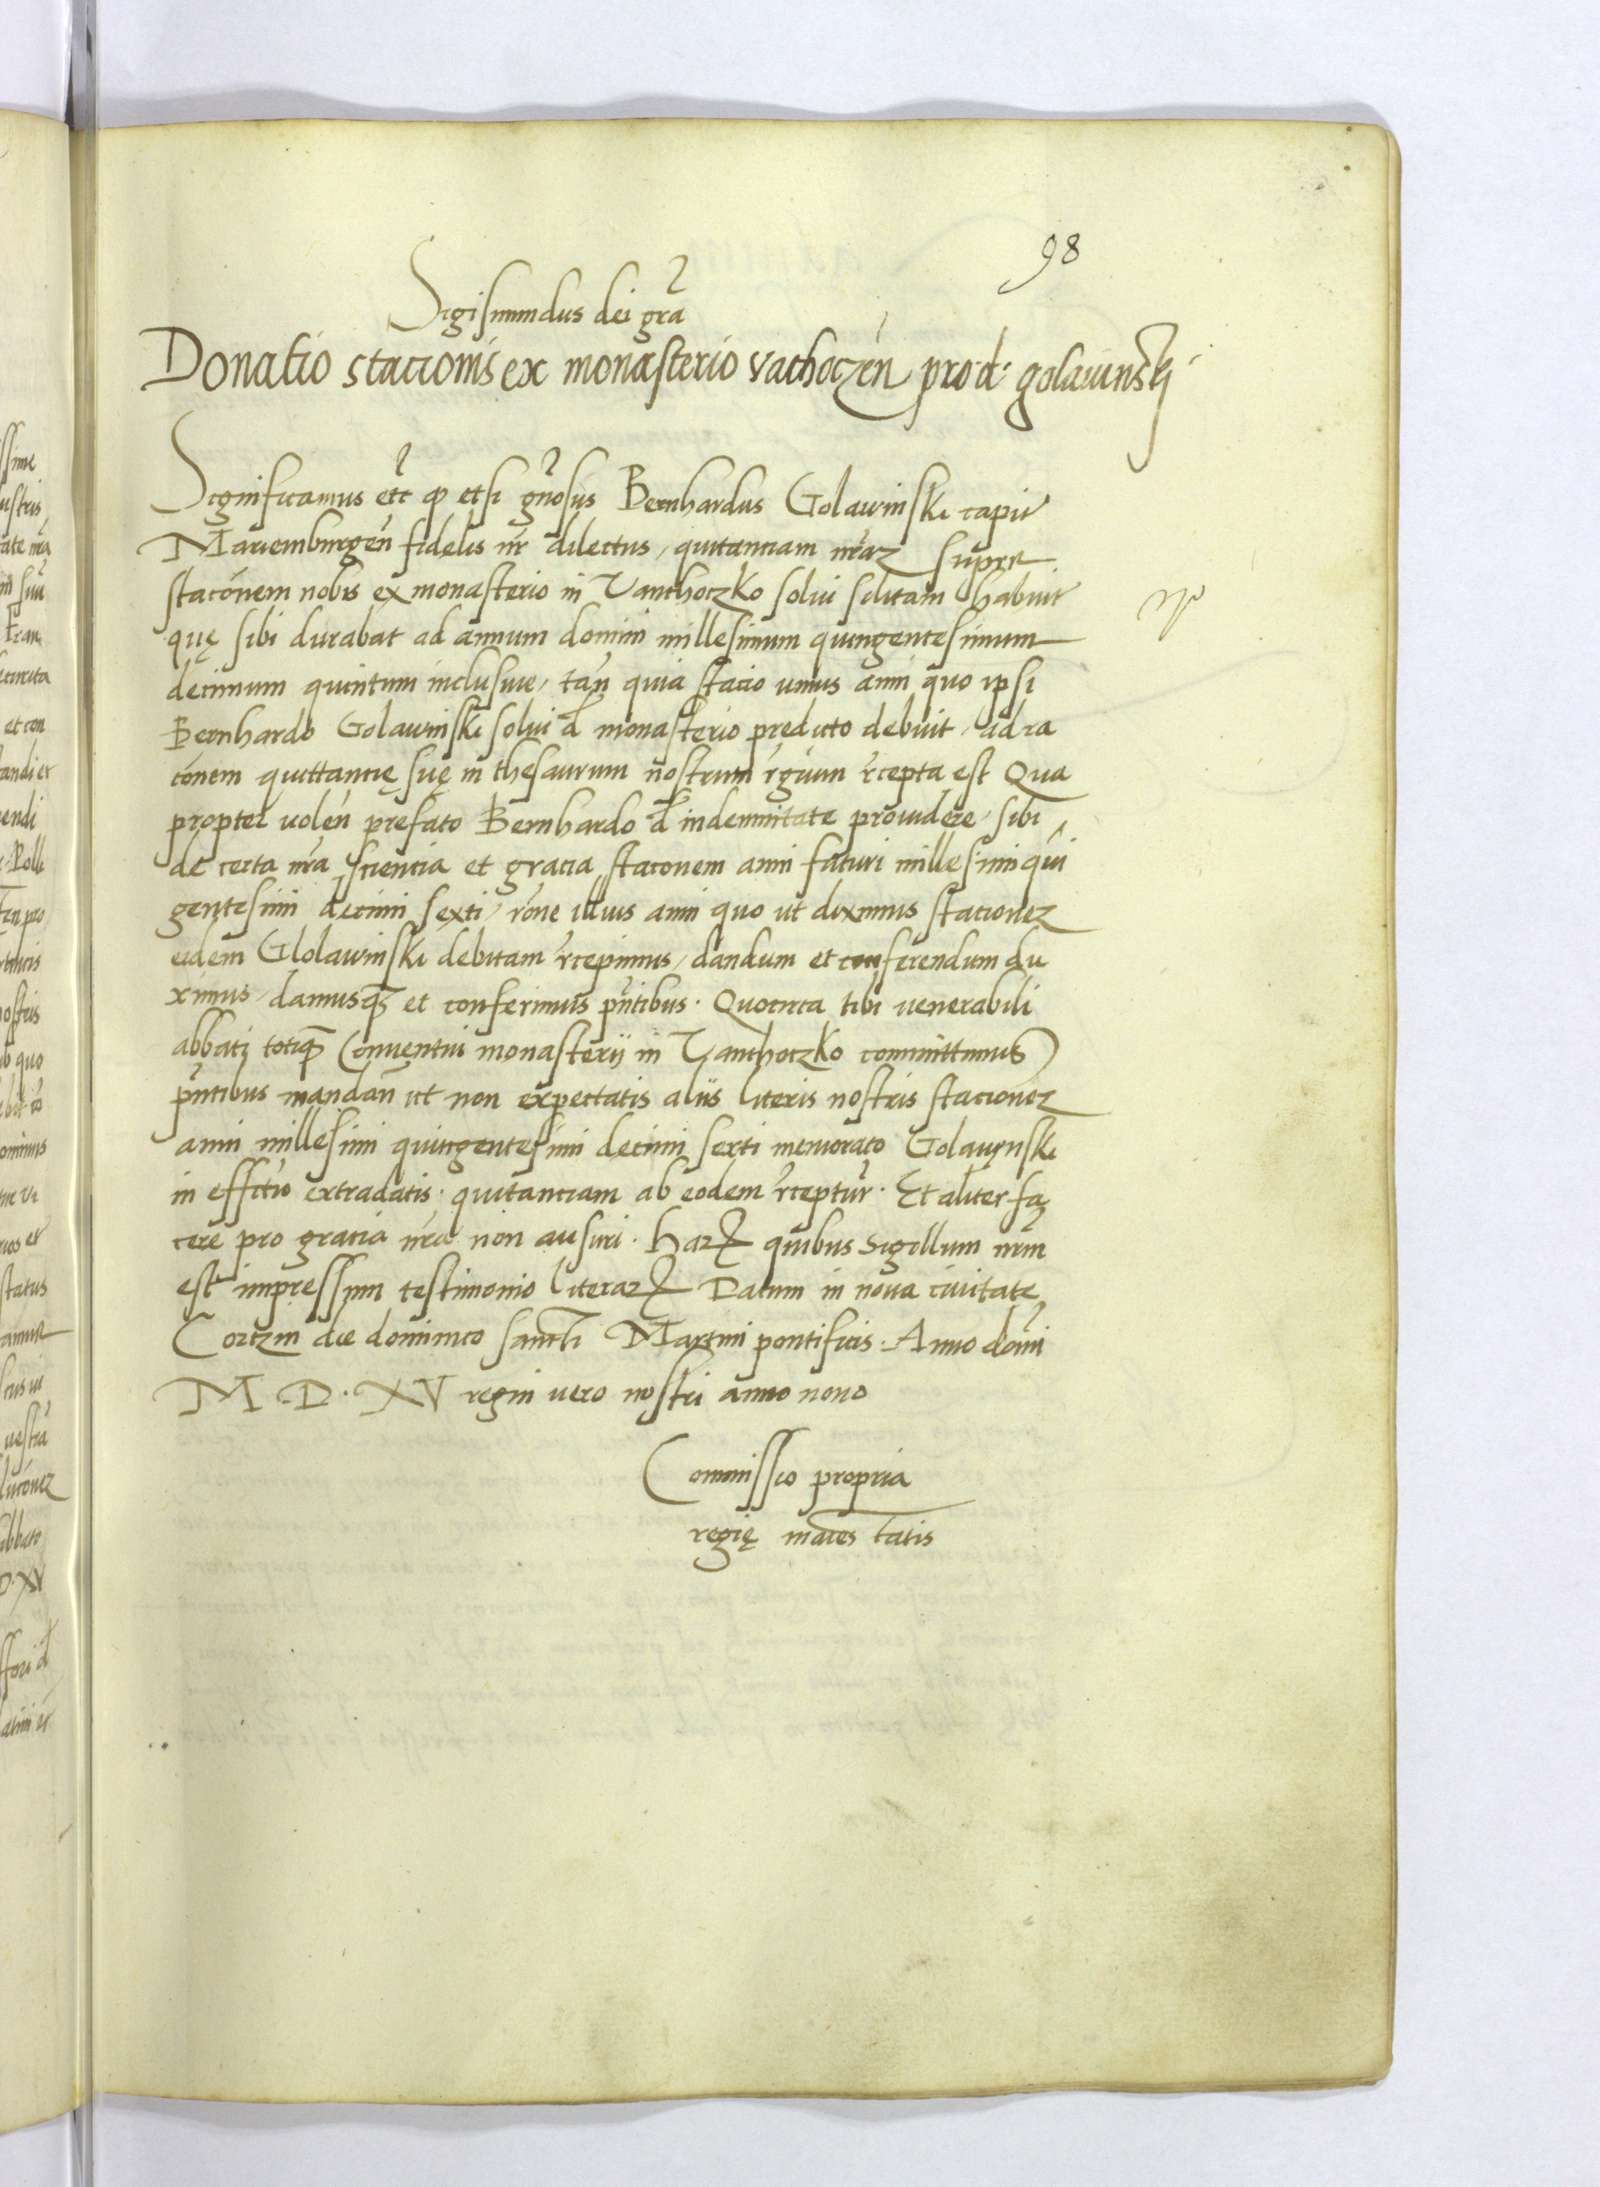 98
Sigismundus dei gra
Donatio stacionis ex monasterio vachoczen pro d. golawinski
Significamus etc q etsi gnosus Bernhardus Golawinski capit
Mariemburgen fidelis nr dilectus, quitanciam nraz super
staconem nobis ex monasterio in Vanthoczko solui solitam habuit
quę sibi durabat ad annum domini millesimum quingentesimum
decimum quintum inclusiue, tan quia stacio unius anni quo ipsi
Bernhardo Golawinski solui d monasterio predicto debuit, ad ra
conem quittantię suę in thesaurum nostrum rgium rcepta est Qua
propter uolen prefato Bernhardo d indemnitate prouidere, sibi
de certa nra scientia et gracia staconem anni futuri millesimi qui
gentesimi decimi sexti, rone illius anni quo ut diximus stacionez
eidem Glolawinski debitam rcepimus, dandum et conferendum du
ximus, damusq et conferimus pntibus. Quocirca tibi venerabili
abbati totiq Conuentui monasterij in Vanthoczko committimus
pntibus mandan ut non expectatis aliis literis nostris stacionez
anni millesimi quingentesimi decimi sexti memorato Golawynski
in effctu extradatis. quitanciam ab eodem rceptur. Et aliter fa
cere pro gracia nra non ausuri. harꝝ quibus sigillum nrm
est impressum testimonio literarꝝ Datum in noua ciuitate
Corczin die dominico sancti Martini pontificis. Anno domi
M. D. XV regni uero nostri anno nono
Commissio propria
regię maiestatis